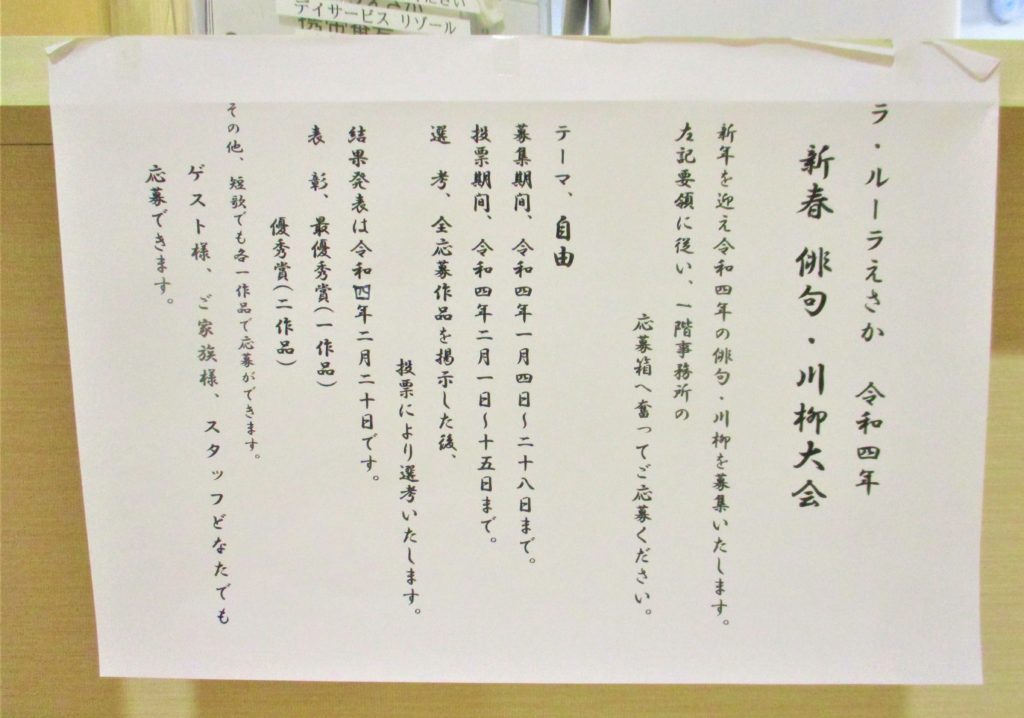 デイサービス リゾール
ラ・ルーラえさか 令和四年
新春 俳句・川柳大会
新年を迎え令和四年の俳句・川柳を募集いたします。
左記要領に従い、一階事務所の
応募箱へ奮ってご応募ください。
テーマ、自由
募集期间、令和四年一月四日～二十八日まで。
投票期间、令和四年二月一日～十五日まで。
選 考、全応募作品を掲示した後、
投票により選考いたします。
結果発表は令和四年二月二十日です。
表 彰、最優秀賞(一作品)
優秀賞(二作品)
その他、短歌でも各一作品で応募ができます。
ゲスト様、ご家族様、スタッフどなたでも
応募できます。